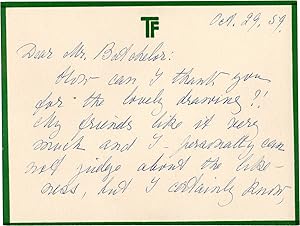 TF
Oct. 29, 59.
Dear Mr. Batchelor:
How can I thank you
for the lovely drawing?!
My friends like it very
much and I - personally can
not judge about the like-
ness, but I certainly know,